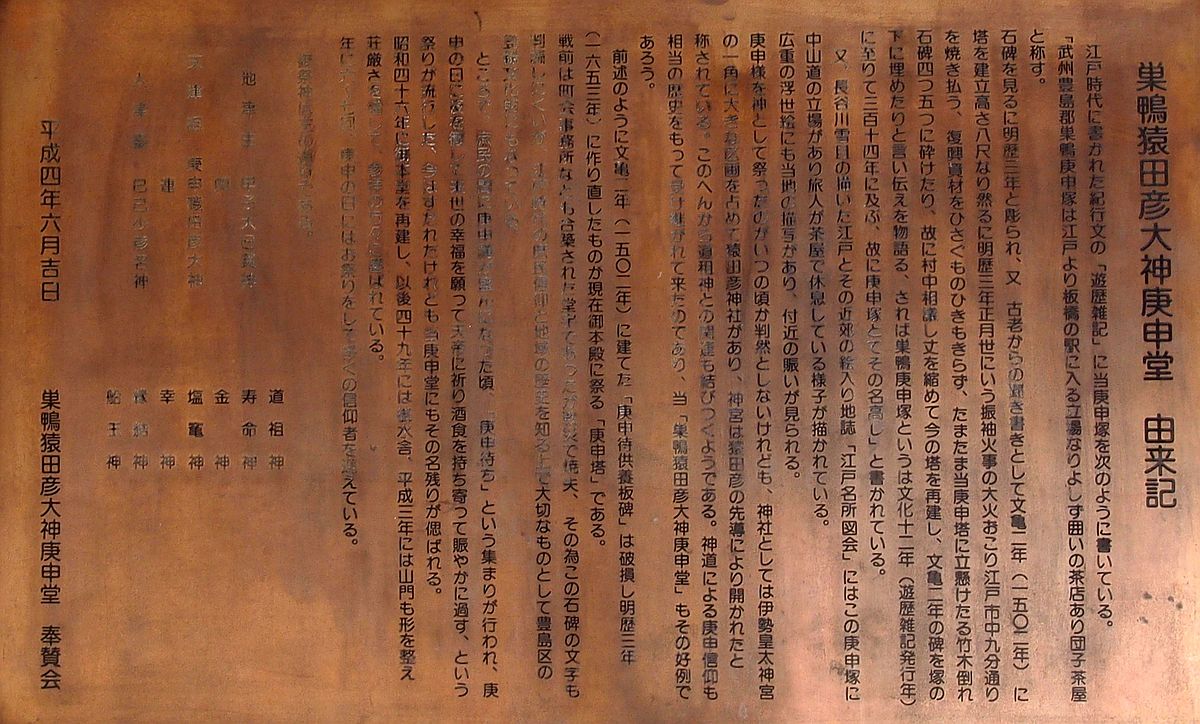 巣鴨猿田彦大神庚申堂　由来記
江戸時代に書かれた紀行文の「遊歴雑記」に当庚申塚を次のように書いている。
「武州豊島郡巣鴨庚申塚は江戸より板橋の駅に入る立場なりよしず囲いの茶店あり団子茶屋
と称す。
石碑を見るに明歴三年と彫られ、又　古老からの聞き書きとして文亀二年（一五〇二年）に
塔を建立高さ八尺なり然るに明歴三年正月世にいう振袖火事の大火おこり江戸市中九分通り
を焼き払う、復興資材をひさぐものひきもきらず、たまたま当庚申塔に立懸けたる竹木倒れ
石碑四つ五つに砕けたり、故に村中相議し丈を縮めて今の塔を再建し、文亀二年の碑を塚の
下に埋めたりと言い伝えを物語る、されば巣鴨庚申塚というは文化十二年（遊歴雑記発行年）
に至りて三百十四年に及ぶ、故に庚申塚とてその名高し」と書かれている。
又、長谷川雪旦の描いた江戸とその近郊の絵入り地誌「江戸名所図会」にはこの庚申塚に
中山道の立場があり旅人が茶屋で休息している様子が描かれている。
広重の浮世絵にも当地の描写があり、付近の賑いが見られる。
庚申様を神として祭ったのがいつの頃か判然としないけれども、神社としては伊勢皇太神宮
の一角に大きな区画を占めて猿田彦神社があり、神宮は猿田彦の先導により開かれたと
称されている。このへんから道祖神との関連も結びつくようである。神道による庚申信仰も
相当の歴史をもって受け継がれて来たのであり、当「巣鴨猿田彦大神庚申堂」もその好例で
あろう。
前述のように文亀二年（一五〇二年）に建てた「庚申待供養板碑」は破損し明歴三年
（一六五三年）に作り直したものが現在御本殿に祭る「庚申塔」である。
戦前は町会事務所なども合築された堂宇であったが戦災で焼失、その為この石碑の文字も
判読しにくいが、江戸時代の庶民信仰と地域の歴史を知る上で大切なものとして豊島区の
ところで、庶民の間に庚申講が盛んになった頃、「庚申待ち」という集まりが行われ、庚
申の日に夜を徹して来世の幸福を願って天帝に祈り酒食を持ち寄って賑やかに過す、という
祭りが流行した、今はすたれたけれども当庚申堂にもその名残りが偲ばれる。
昭和四十六年に御本堂を再建し、以後四十九年には御水舎、平成三年には山門も形を整え
荘厳さを増して、参拝の方々に喜ばれている。
年に六、七回、庚申の日にはお祭りをして多くの信仰者を迎えている。
道祖神
寿命神
金神
塩竃神
幸神
船玉神
平成四年六月吉日　巣鴨猿田彦大神庚申堂　奉賛会